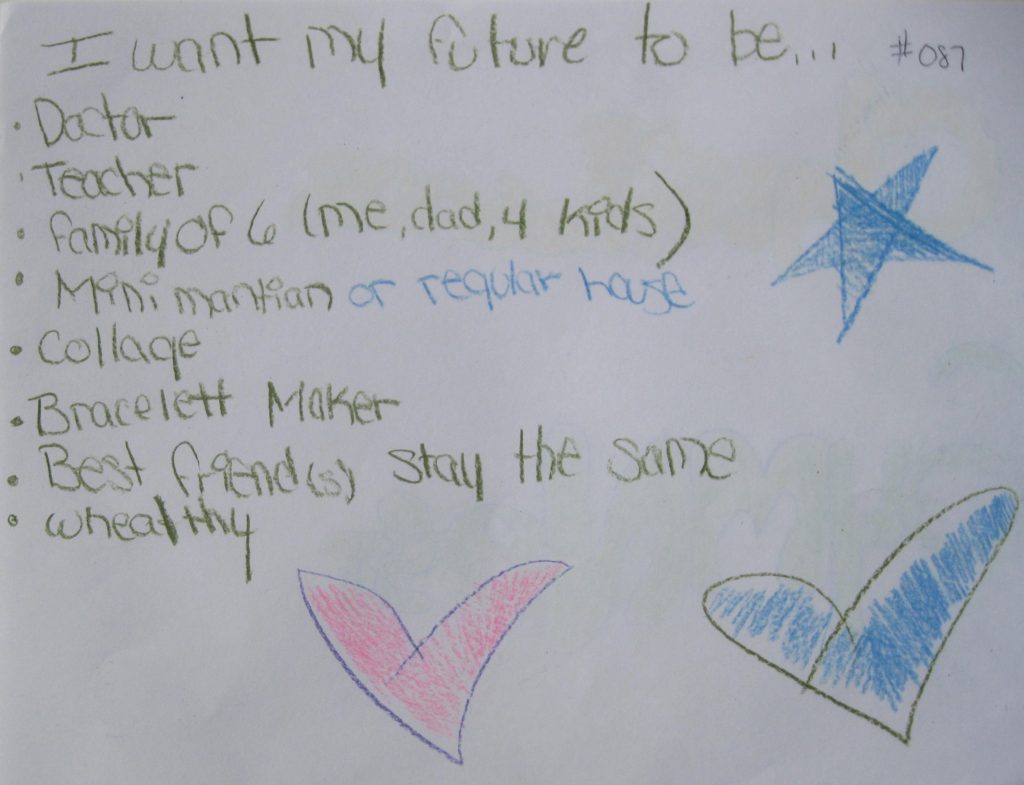 I want my future to be... #087
• Doctor
• Teacher
• family of 6 (me, dad, 4 kids)
• Mini mantian or regular house
• Collage
• Bracelett Maker
• Best friend(s) stay the same
• whealthy